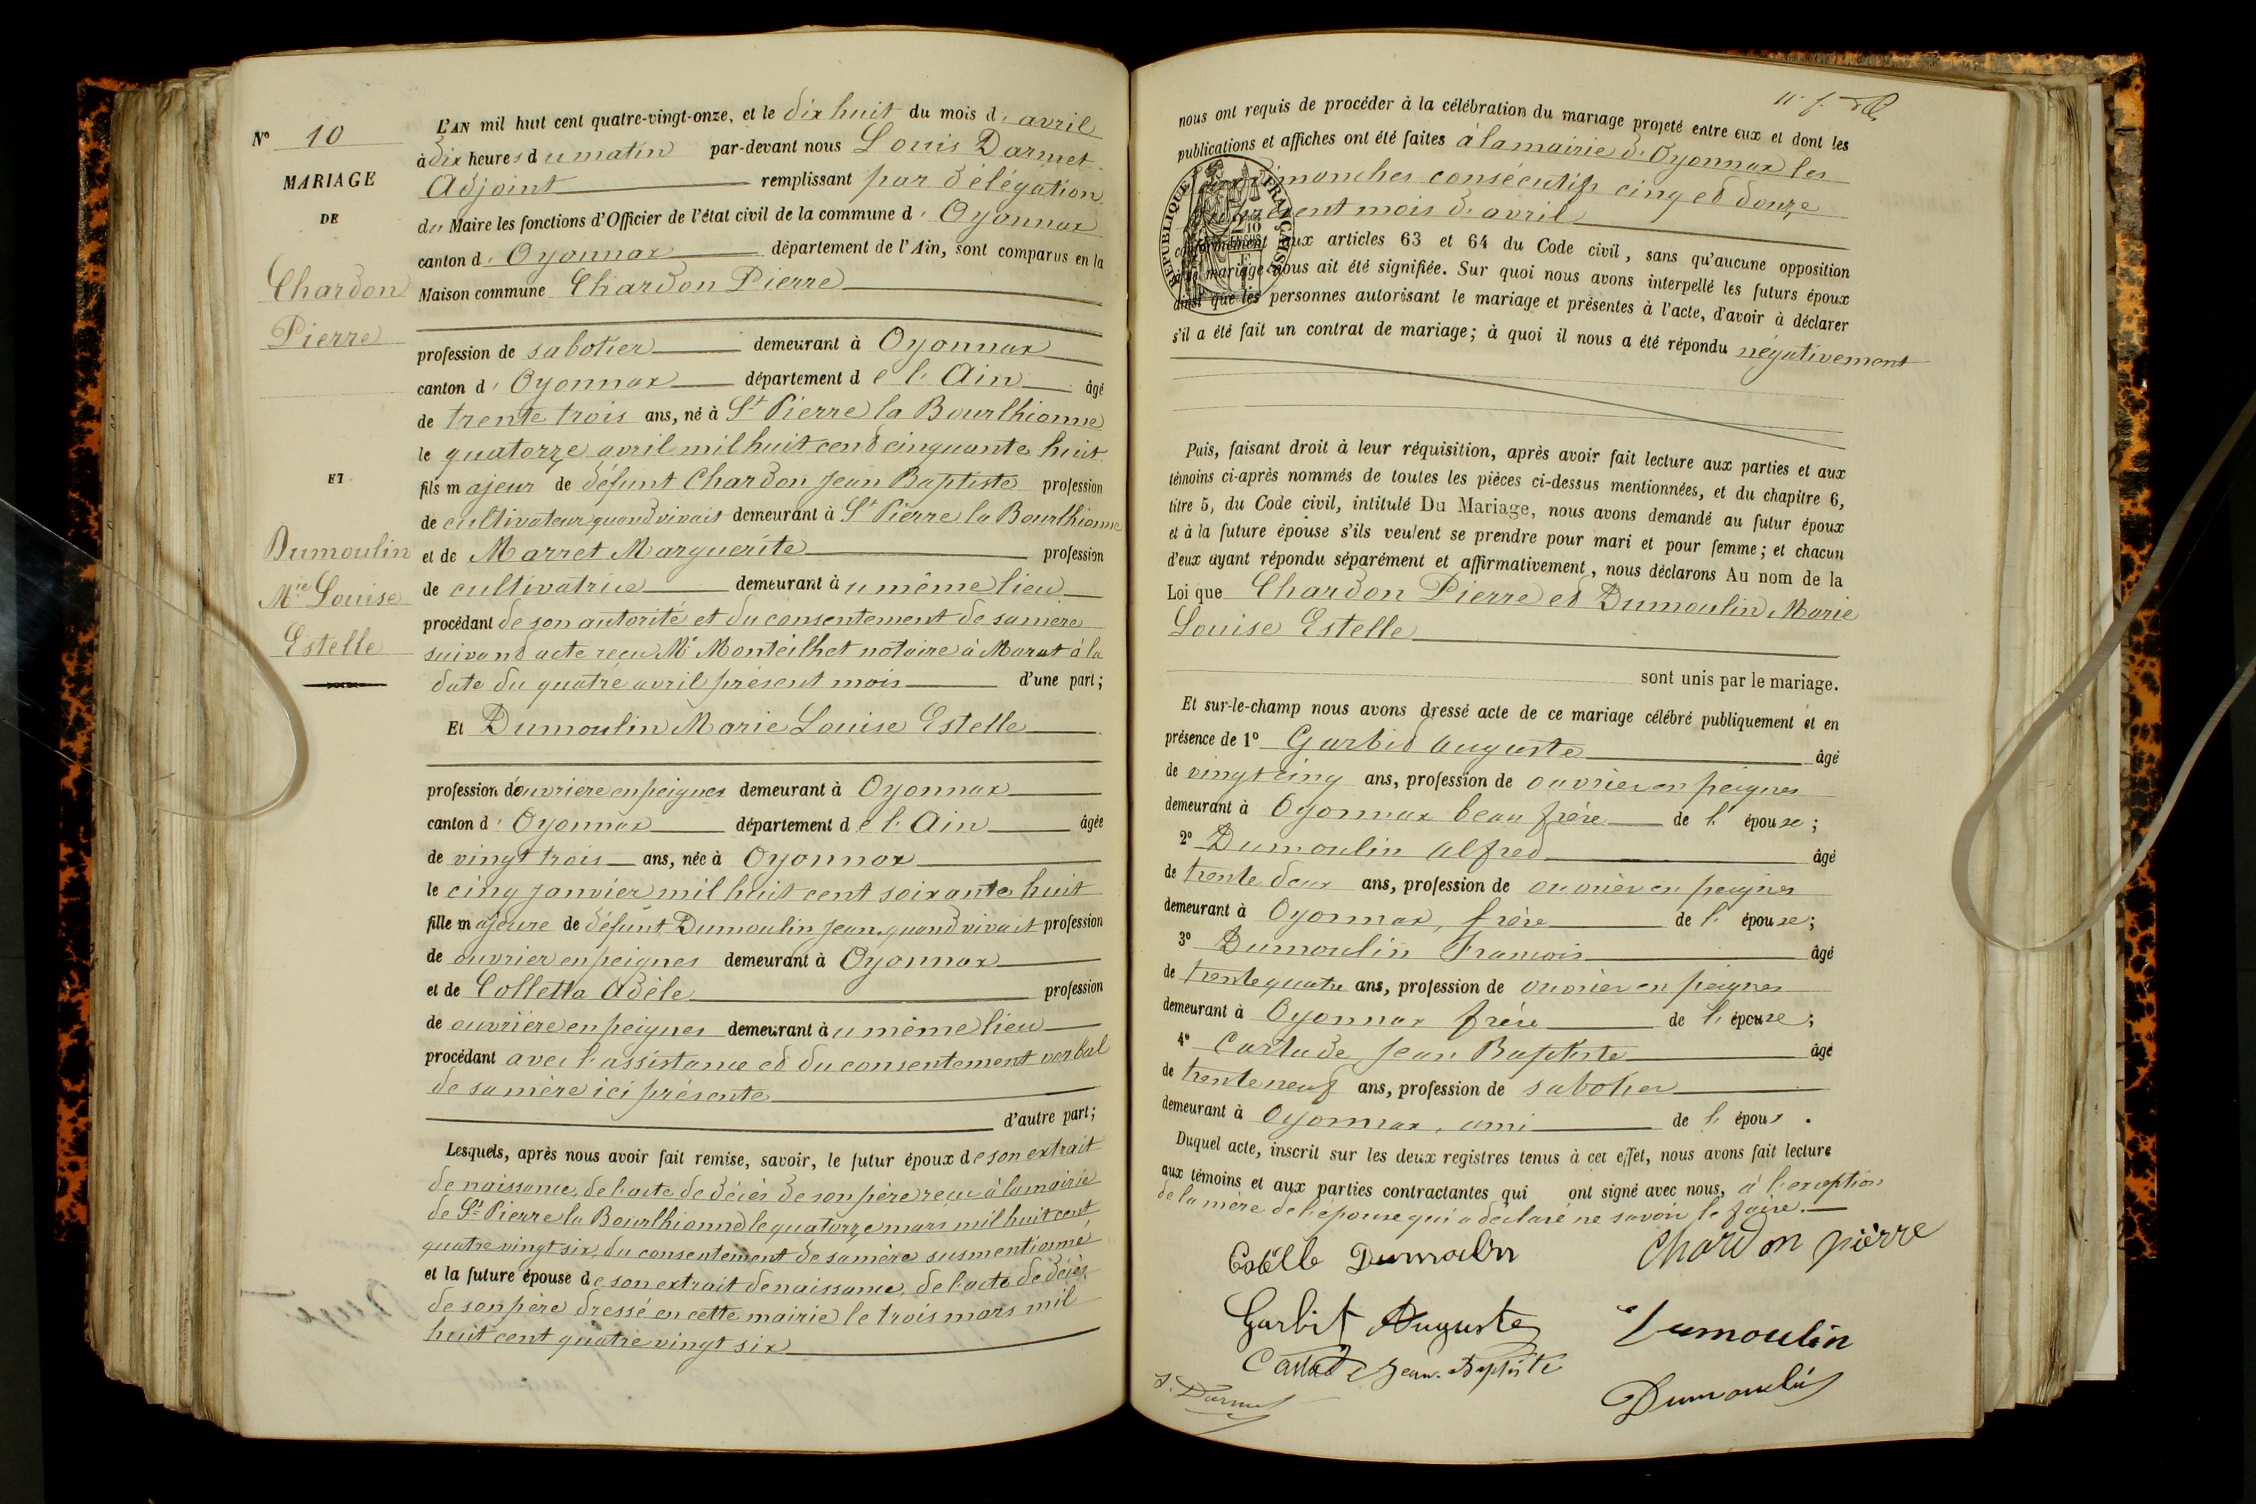 N° 10
MARIAGE
DE
Chardon
Pierre
ET
Dumoulin
Mie Louise
Estelle
L'AN mil huit cent quatre-vingt-onze, et le dix huit du mois d'avril
à dix heures du matin par-devant nous Louis Darmet
Adjoint remplissant par délégation
du Maire les fonctions d'Officier de l'état civil de la commune d'Oyonnax
canton d'Oyonnax département de l'Ain, sont comparus en la
Maison commune Chardon Pierre
profession de sabotier demeurant à Oyonnax
canton d'Oyonnax département de l'Ain âgé
de trente trois ans, né à St Pierre la Bourlhionne
le quatorze avril mil huit cent cinquante huit
fils majeur de défunt Chardon Jean Baptiste profession
de cultivateur quand vivait demeurant à St Pierre la Bourlhionne
et de Marret Marguerite profession
de cultivatrice demeurant àu même lieu
procédant de son autorité et du consentement de sa mère
suivant acte reçu Me Monteilhet notaire à Marat à la
date du quatre avril présent mois d'une part;
Et Dumoulin Marie Louise Estelle
profession d'ouvrière en peignes demeurant à Oyonnax
canton d'Oyonnax département de l'Ain âgée
de vingt trois ans, née à Oyonnax
le cinq janvier mil huit cent soixante huit
fille majeure de défunt Dumoulin Jean, quand vivait profession
de ouvrier en peignes demeurant à Oyonnax
et de Colletta Adèle profession
de ouvrière en peignes demeurant àu même lieu
procédant avec l'assistance et du consentement verbal
de sa mère ici présente
d'autre part;
Lesquels, après nous avoir fait remise, savoir, le futur époux de son extrait
de naissance, de l'acte de décès de son père reçu à la mairie
de St Pierre la Bourlhionne le quatorze mars mil huit cent
quatre vingt six, du consentement de sa mère susmentionné,
et la future épouse de son extrait de naissance, de l'acte de décès
de son père dressé en cette mairie le trois mars mil
huit cent quatre vingt six
nous ont requis de procéder à la célébration du mariage projeté entre eux et dont les
publications et affiches ont été faites à la mairie d'Oyonnax les
dimanches consécutifs cinq et douze
présent mois d'avril
RÉPUBLIQUE FRANÇAISE
conformément aux articles 63 et 64 du Code civil, sans qu'aucune opposition
à ce mariage nous ait été signifiée. Sur quoi nous avons interpellé les futurs époux
ainsi que les personnes autorisant le mariage et présentes à l'acte, d'avoir à déclarer
s'il a été fait un contrat de mariage; à quoi il nous a été répondu négativement
Puis, faisant droit à leur réquisition, après avoir fait lecture aux parties et aux
témoins ci-après nommés de toutes les pièces ci-dessus mentionnées, et du chapitre 6,
titre 5, du Code civil, intitulé Du Mariage, nous avons demandé au futur époux
et à la future épouse s'ils veulent se prendre pour mari et pour femme; et chacun
d'eux ayant répondu séparément et affirmativement, nous déclarons Au nom de la
Loi que Chardon Pierre et Dumoulin Marie
Louise Estelle
sont unis par le mariage.
Et sur-le-champ nous avons dressé acte de ce mariage célébré publiquement et en
présence de 1° Garbit Auguste âgé
de vingt cinq ans, profession de ouvrier en peignes
demeurant à Oyonnax beau frère de l'épouse;
2° Dumoulin Alfred âgé
de trente deux ans, profession de ouvrier en peignes
demeurant à Oyonnax, frère de l'épouse;
3° Dumoulin Francois âgé
de trente quatre ans, profession de ouvrier en peignes
demeurant à Oyonnax frère de l'épouse;
4° Cartade Jean Baptiste âgé
de trente neuf ans, profession de sabotier
demeurant à Oyonnax, ami de l'époux.
Duquel acte, inscrit sur les deux registres tenus à cet effet, nous avons fait lecture
aux témoins et aux parties contractantes qui ont signé avec nous, à l'exception
de la mère de l'épouse qui a déclaré ne savoir le faire.
Estelle Dumoulin
Chardon pièrre
Garbit Auguste
Dumoulin
Cartade Jean-Baptiste
Dumoulin
L. Darmet